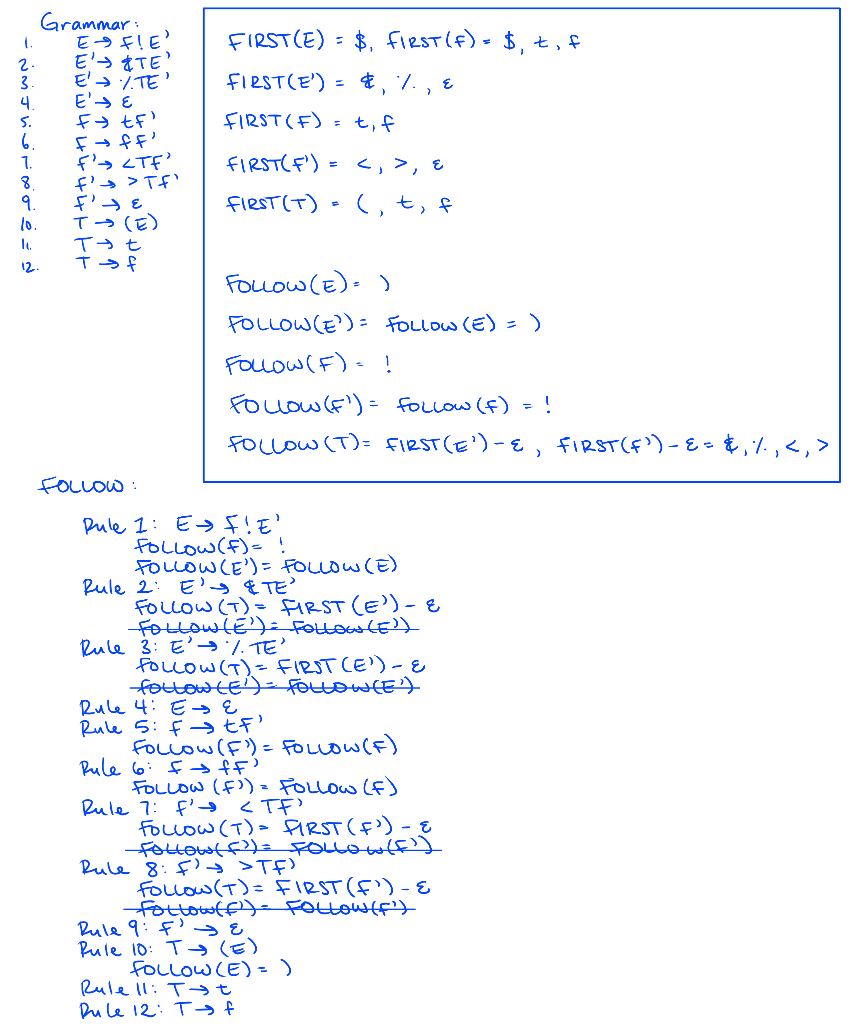 Grammar:
1. E → F!E'
2. E' → ¢TE'
3. E' → %TE'
4. E' → ε
5. F → tF'
6. F → fF'
7. F' → <TF'
8. F' → >TF'
9. F' → ε
10. T → (E)
11. T → t
12. T → f
FIRST(E) = $, FIRST(F) = $, t, f
FIRST(E') = ¢, %, ε
FIRST(F) = t, f
FIRST(F') = <, >, ε
FIRST(T) = (, t, f
FOLLOW(E) = )
FOLLOW(E') = FOLLOW(E) = )
FOLLOW(F) = !
FOLLOW(F') = FOLLOW(F) = !
FOLLOW(T) = FIRST(E') - ε, FIRST(F') - ε = ¢, %, <, >
FOLLOW:
Rule 1: E → F!E'
FOLLOW(F) = !
FOLLOW(E') = FOLLOW(E)
Rule 2: E' → ¢TE'
FOLLOW(T) = FIRST(E') - ε
FOLLOW(E') = FOLLOW(E')
Rule 3: E' → %TE'
FOLLOW(T) = FIRST(E') - ε
FOLLOW(E') = FOLLOW(E')
Rule 4: E → ε
Rule 5: F → tF'
FOLLOW(F') = FOLLOW(F)
Rule 6: F → fF'
FOLLOW(F') = FOLLOW(F)
Rule 7: F' → <TF'
FOLLOW(T) = FIRST(F') - ε
FOLLOW(F') = FOLLOW(F')
Rule 8: F' → >TF'
FOLLOW(T) = FIRST(F') - ε
FOLLOW(F') = FOLLOW(F')
Rule 9: F' → ε
Rule 10: T → (E)
FOLLOW(E) = )
Rule 11: T → t
Rule 12: T → f